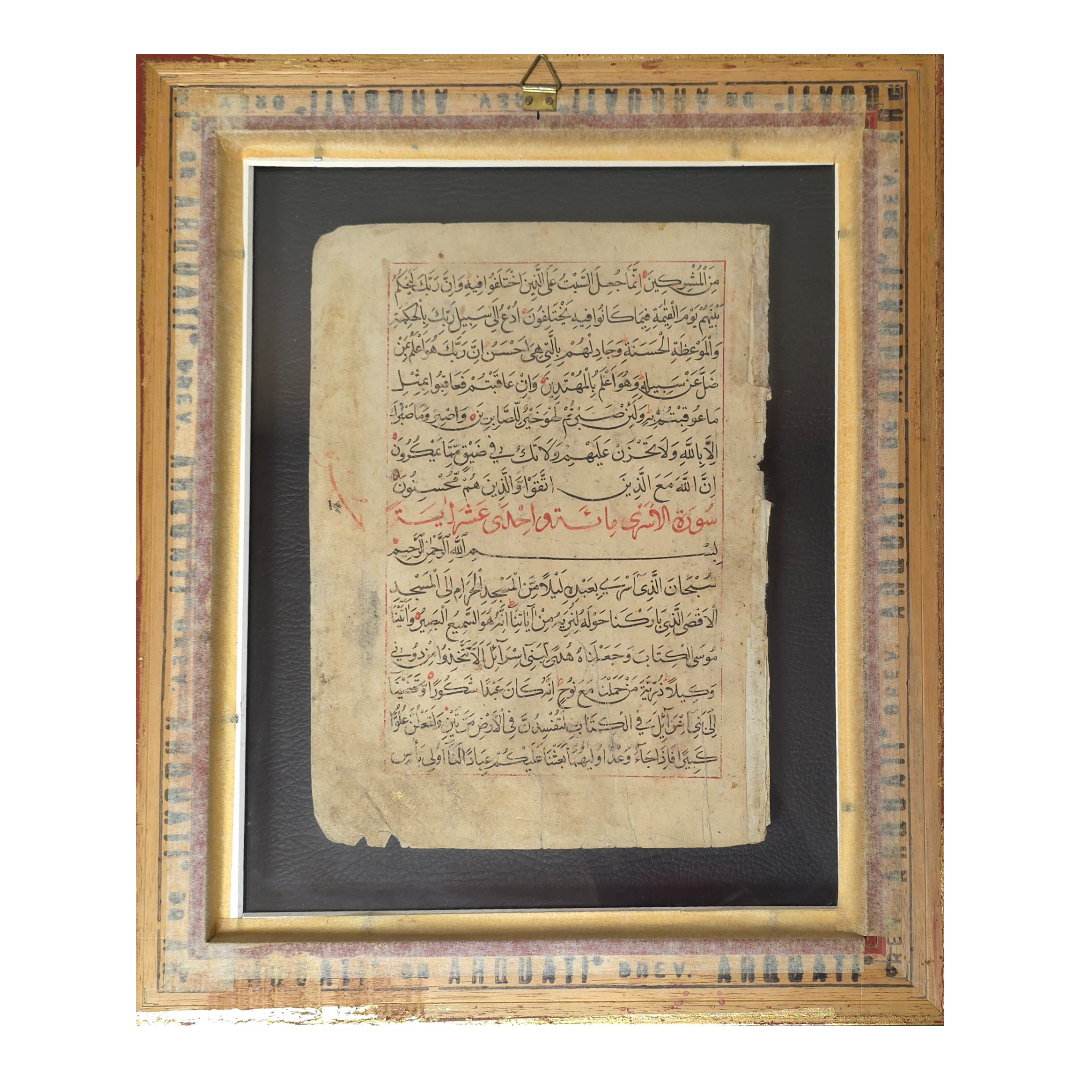 مِنَ الْمُشْرِكِينَ اِنَّمَا جُعِلَ السَّبْتُ عَلَى الَّذِينَ اخْتَلَفُوا فِيهِ وَاِنَّ رَبَّكَ لَيَحْكُمُ
بَيْنَهُمْ يَوْمَ الْقِيٰمَةِ فِيمَا كَانُوا فِيهِ يَخْتَلِفُونَ اُدْعُ اِلَى سَبِيلِ رَبِّكَ بِالْحِكْمَةِ
وَالْمَوْعِظَةِ الْحَسَنَةِ وَجَادِلْهُمْ بِالَّتِي هِيَ اَحْسَنُ اِنَّ رَبَّكَ هُوَ اَعْلَمُ بِمَنْ
ضَلَّ عَنْ سَبِيلِهِ وَهُوَ اَعْلَمُ بِالْمُهْتَدِينَ وَاِنْ عَاقَبْتُمْ فَعَاقِبُوا بِمِثْلِ
مَا عُوقِبْتُمْ بِهِ وَلَئِنْ صَبَرْتُمْ لَهُوَ خَيْرٌ لِلصَّابِرِينَ وَاصْبِرْ وَمَا صَبْرُكَ
اِلَّا بِاللَّهِ وَلَا تَحْزَنْ عَلَيْهِمْ وَلَا تَكُ فِي ضَيْقٍ مِمَّا يَمْكُرُونَ
اِنَّ اللَّهَ مَعَ الَّذِينَ اتَّقَوْا وَالَّذِينَ هُمْ مُحْسِنُونَ
سُورَةُ الْاَسْرٰى مِائَة وَاِحْدٰى عَشَر اٰيَة
بِسْمِ اللَّهِ الرَّحْمٰنِ الرَّحِيمِ
سُبْحَانَ الَّذِي اَسْرٰى بِعَبْدِهِ لَيْلًا مِنَ الْمَسْجِدِ الْحَرَامِ اِلَى الْمَسْجِدِ
الْاَقْصَى الَّذِي بَارَكْنَا حَوْلَهُ لِنُرِيَهُ مِنْ اٰيَاتِنَا اِنَّهُ هُوَ السَّمِيعُ الْبَصِيرُ وَاٰتَيْنَا
مُوسَى الْكِتَابَ وَجَعَلْنَاهُ هُدًى لِبَنِي اِسْرَآئِلَ اَلَّا تَتَّخِذُوا مِنْ دُونِي
وَكِيلًا ذُرِّيَّةَ مَنْ حَمَلْنَا مَعَ نُوحٍ اِنَّهُ كَانَ عَبْدًا شَكُورًا وَقَضَيْنَا
اِلَى بَنِي اِسْرَآئِلَ فِي الْكِتَابِ لَتُفْسِدُنَّ فِي الْاَرْضِ مَرَّتَيْنِ وَلَتَعْلُنَّ عُلُوًّا
كَبِيرًا فَاِذَا جَاءَ وَعْدُ اُولٰيهُمَا بَعَثْنَا عَلَيْكُمْ عِبَادًا لَنَا اُولِي بَأْسٍ
ARQUATI® BREV. ARQUATI®